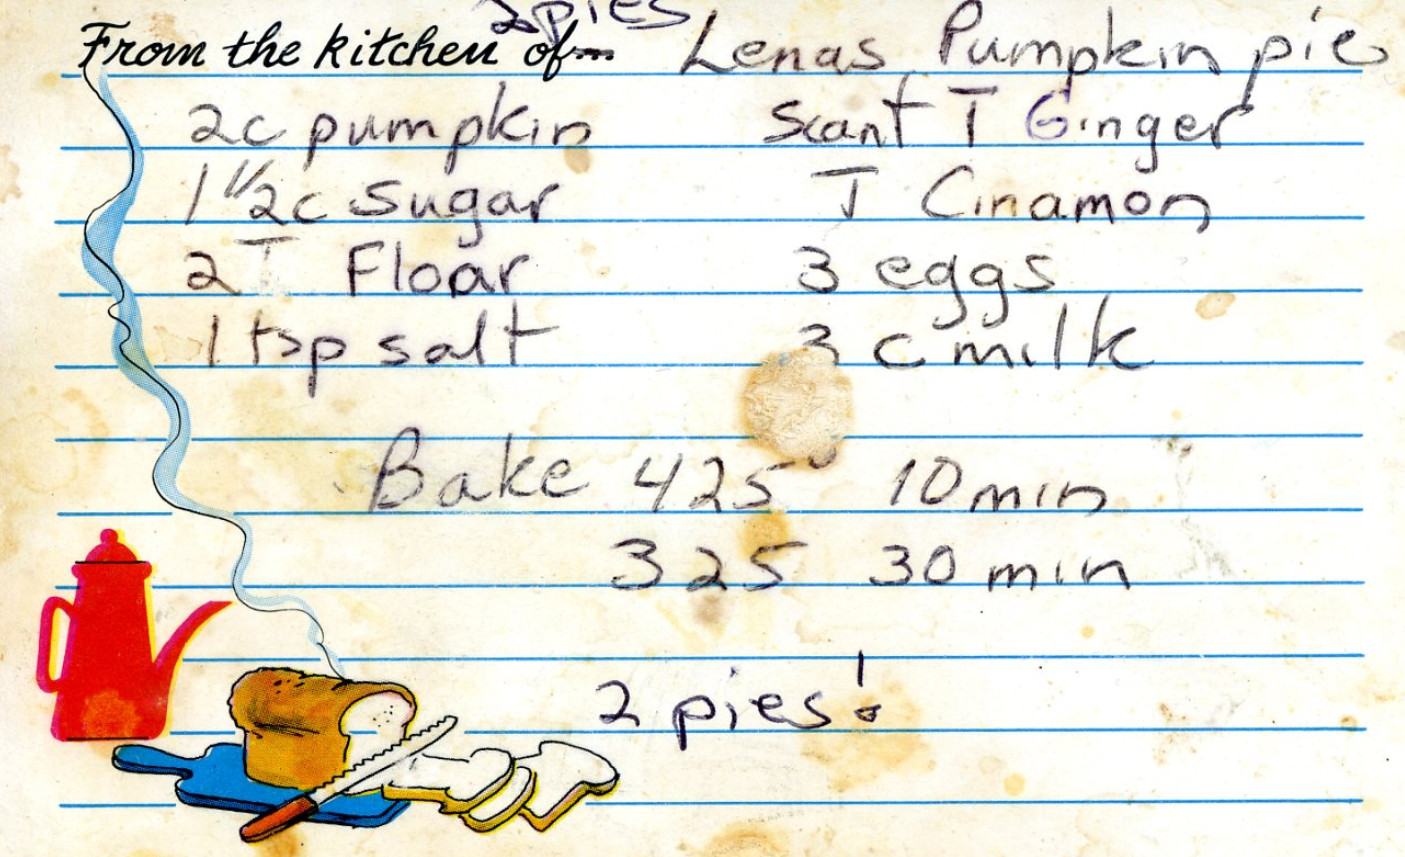 2 pies
From the kitchen of... Lenas Pumpkin pie
2c pumpkin scant T Ginger
1 1/2c sugar T Cinamon
2T Floar 3 eggs
1 tsp salt 3 c milk
Bake 425° 10 min
325 30 min
2 pies!